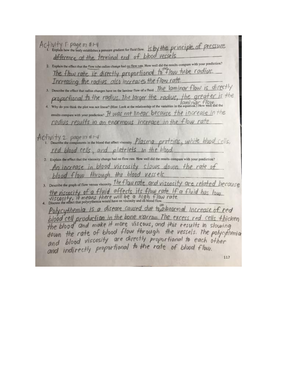 Activity 1 pages
1. Explain how the body establishes a pressure gradient for fluid flow. is by this principle of pressure
difference at the terminal end of blood vessels
2. Explain the effect that the flow tube radius change had on flow rate. How well did the results compare with your prediction?
The flow rate is directly proportional to flow tube radius.
Increasing the radius also increases the flow rate
3. Describe the effect that radius changes have on the laminar flow of a fluid. The laminar flow is directly
proportional to the radius. The larger the radius, the greater is the
laminar flow.
4. Why do you think the plot was not linear? (Hint: Look at the relationship of the variables in the equation.) How well did the
results compare with your prediction? It was not linear because the increase in the
radius results in an enormous increase in the flow rate.
Activity 2 pages
1. Describe the components in the blood that affect viscosity. Plasma proteins, white blood cells,
red blood cells, and platelets in the blood
2. Explain the effect that the viscosity change had on flow rate. How well did the results compare with your prediction?
An increase in blood viscosity slows down the rate of
blood flow through the blood vessels.
3. Describe the graph of flow versus viscosity. The flow rate and viscosity are related because
the viscosity of a fluid affects its flow rate. If a fluid has low
viscosity, it means there will be a high flow rate.
4. Discuss the effect that polycythemia would have on viscosity and on blood flow.
Polycythemia is a disease caused due to abnormal increase of red
blood cell production in the bone marrow. The excess red cells thicken
the blood and make it more viscous, and this results in slowing
down the rate of blood flow through the vessels. The polycythemia
and blood viscosity are directly proportional to each other
and indirectly proportional to the rate of blood flow.
117